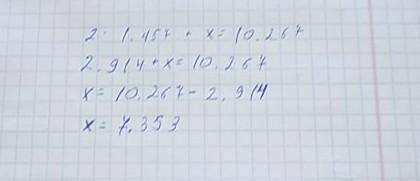 2· 1.457 + x = 10.267
2.914 + x = 10.267
x = 10.267 - 2.914
x = 7.353